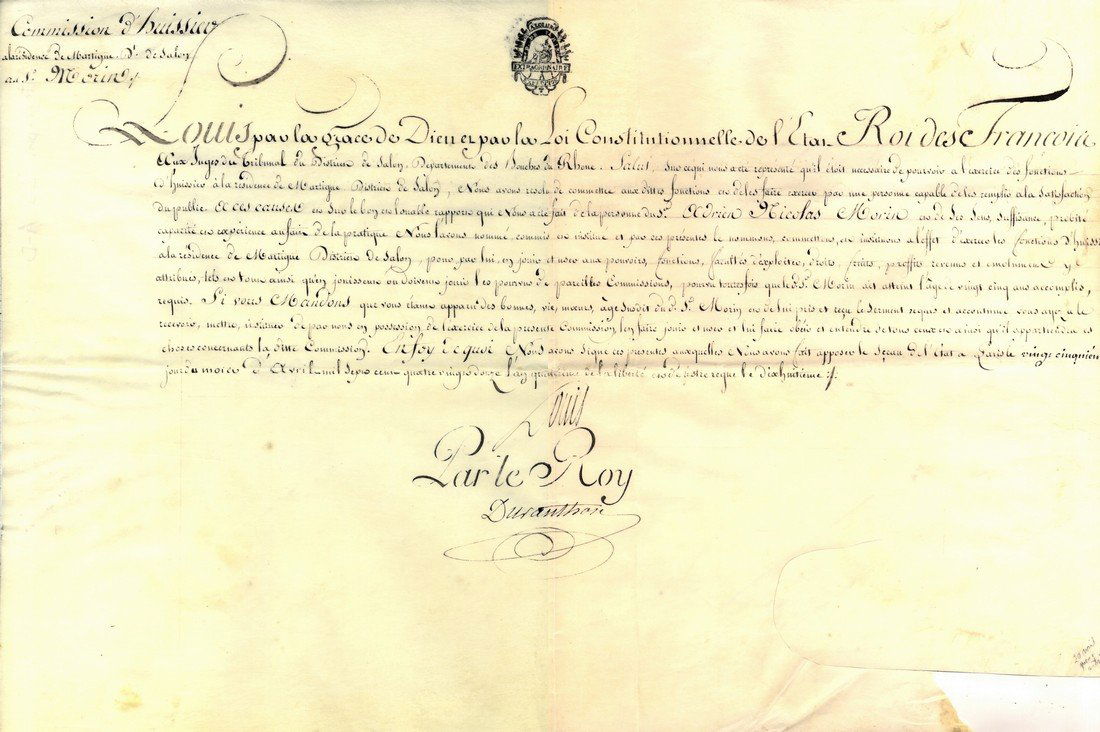 Commission d'huissier
a la residence de Martigue Dt. de Salon
au Sr. Morin
EXTRAORDINAIRE
Louis par la grace de Dieu et par la Loi Constitutionnelle de l'Etat Roi des François
Aux Juges du Tribunal du District de Salon, Departement des Bouches du Rhone. Salut, Sur ce qui nous a été représenté qu'il étoit necessaire de pourvoir a l'exercice des fonctions
d'huissier à la residence de Martigue District de Salon, Nous avons resolu de commettre aux dittes fonctions et de les faire exercer par une personne capable de les remplir à la satisfaction
du public A ces causes et sur le bon et louable rapport qui Nous a été fait de la personne du Sr. Adrien Nicolas Morin et de ses sens, suffisance, probité
capacité et experience au fait de la pratique Nous l'avons nommé, commis et institué et par ces presentes le nommons, commettons, et instituons a l'effet d'exercer les fonctions d'huissier
à la residence de Martigue District de Salon, pour, par lui, en jouir et user aux pouvoirs, fonctions, facultés d'exploiter, droits, fruits, proffits revenus et emolumens y
attribués, tels et tout ainsi qu'en jouissent ou doivent jouir les pourvus de pareilles Commissions, pourvu toutesfois que le d. Sr. Morin ait atteint l'âge de vingt cinq ans accomplis,
requis. Si vous Mandons que vous etant apparu des bonnes, vie, mœurs, âge susdit du d. Sr. Morin et de lui pris et reçu le serment requis et accoutumé vous ayez à le
recevoir, mettre, instituer de par nous en possession de l'exercice de la presente Commission l'en faire jouir et user et lui faire obéir et entendre de tous ceux et ainsi qu'il appartiendra es
choses concernants la dite Commission. En foy de quoi Nous avons signé ces presentes auxquelles Nous avons fait apposer le Sceau de l'Etat a Paris le vingt cinquieme
jour du mois d'Avril mil sept cent quatre vingt douze l'an quatrieme de la liberté et de notre regne le dixhuitieme
Louis
Par le Roy
Duranthon